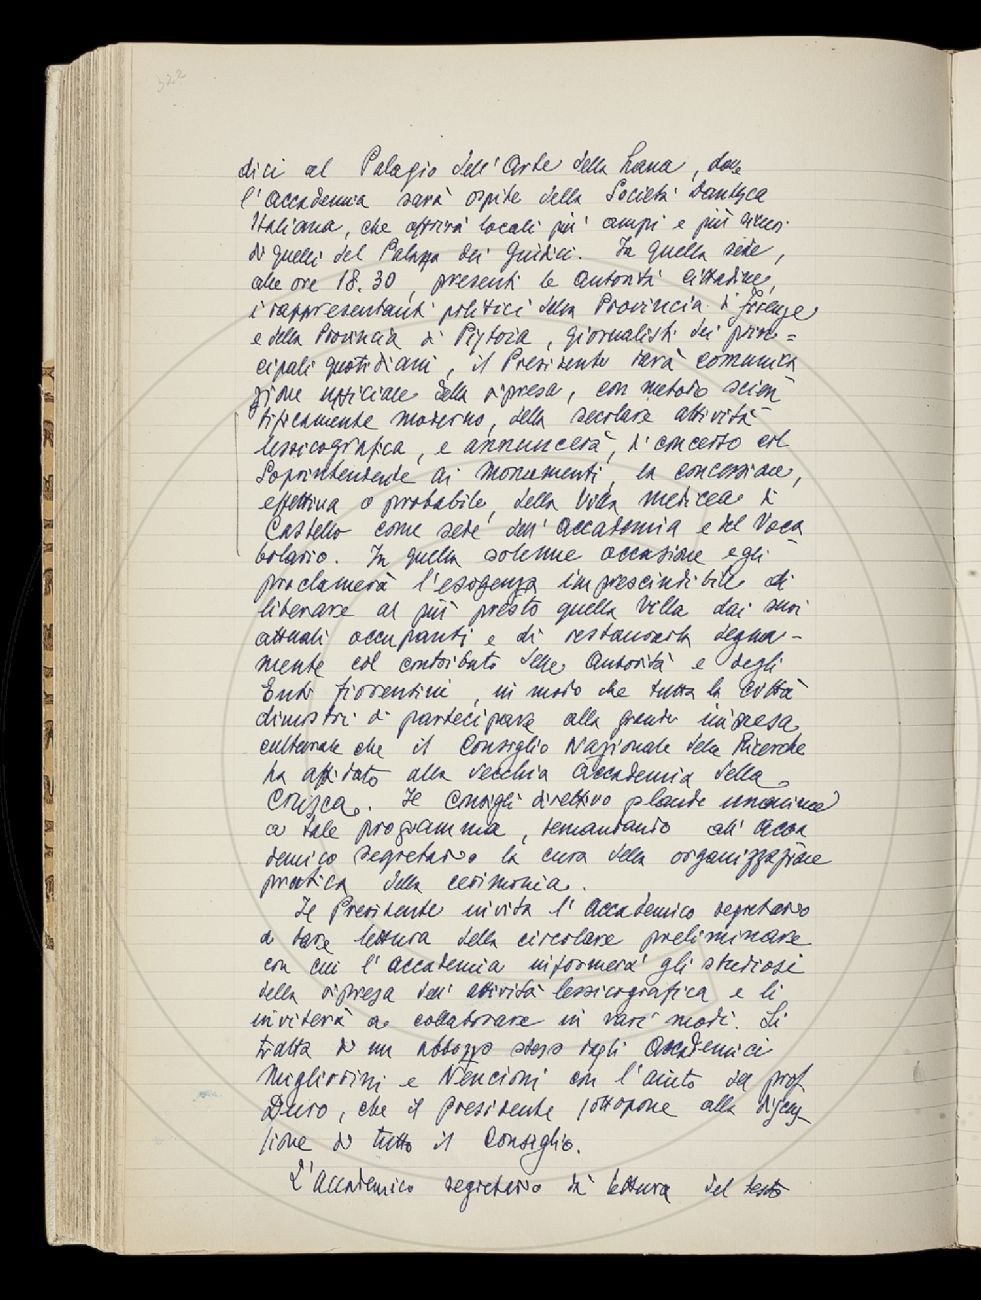 322
dici al Palagio dell'Arte della Lana, dove
l'Accademia sarà ospite della Società Dantesca
Italiana, che offrirà locali più ampi e più
di quelli del Palazzo dei Giudici. In quella sede,
alle ore 18.30, presenti le autorità cittadine,
i rappresentanti politici della Provincia di Firenze
e della Provincia di Pistoia, giornalisti dei prin=
cipali quotidiani, il Presidente darà comunica
zione ufficiale della ripresa, con metodo scien
tificamente moderno, della secolare attività
lessicografica, e annuncerà, di concerto col
Soprintendente ai Monumenti, la concessione,
effettiva o probabile, della Villa medicea di
Castello come sede dell'Accademia e del Voca
bolario. In quella solenne occasione egli
proclamerà l'esigenza imprescindibile di
liberare al più presto quella Villa dai suoi
attuali occupanti e di restaurarla degna-
mente col contributo delle Autorità e degli
Enti fiorentini, in modo che tutta la città
dimostri di partecipare alla grande impresa
culturale che il Consiglio Nazionale delle Ricerche
ha affidato alla vecchia Accademia della
Crusca. Il Consiglio direttivo plaude unanime
a tale programma, demandando all'Acca
demico segretario la cura della organizzazione
pratica della cerimonia.
Il Presidente invita l'Accademico segretario
a dare lettura della circolare preliminare
con cui l'Accademia informerà gli studiosi
della ripresa dell'attività lessicografica e li
inviterà a collaborare in vari modi. Si
tratta di un abbozzo steso dagli Accademici
Migliorini e Nencioni con l'aiuto del prof.
Duro, che il Presidente sottopone alla discus
sione di tutto il Consiglio.
L'Accademico segretario dà lettura del testo